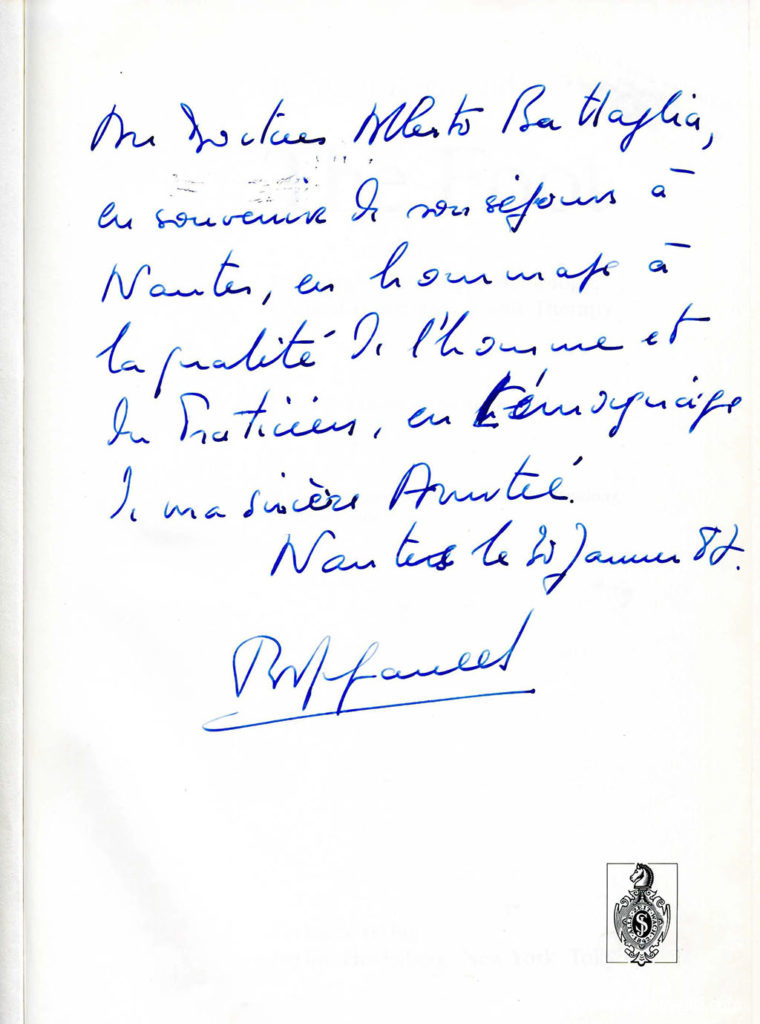 Au Docteur Alberto Battaglia,
en souvenir de son séjour à
Nantes, en hommage à
la qualité de l'homme et
du Praticien, en témoignage
de ma sincère Amitié.
Nantes le 20 Janvier 87.